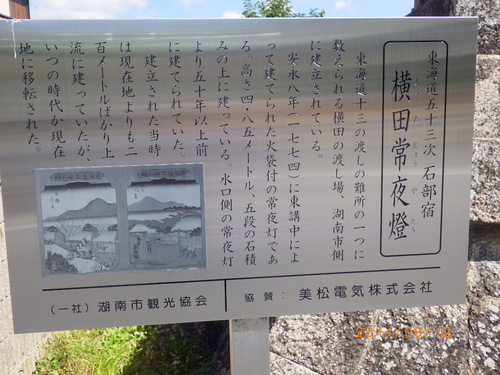 東海道五十三次 石部宿
横田常夜燈
じょうやとう
東海道十三の渡しの難所の一つに
数えられる横田の渡し場、湖南市側
に建立されている。
安永八年(一七七四)に東講中によ
って建てられた火袋付の常夜灯であ
る。高さ四・八五メートル、五段の石積
みの上に建っている。水口側の常夜灯
より五十年以上前
に建てられていた。
建立された当時
は現在地よりも二
百メートルばかり上
流に建っていたが、
いつの時代か現在
地に移転された。
(一社)湖南市観光協会
協賛:美松電気株式会社